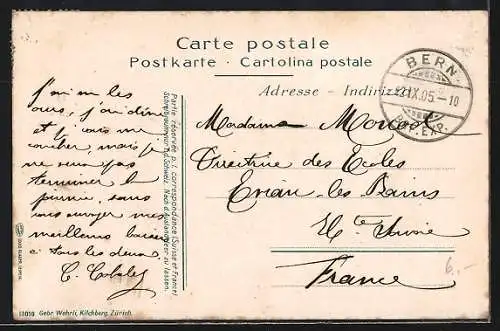 Carte postale
Postkarte · Cartolina postale
Adresse - Indirizzo
BERN
21.IX.05.-10
BRF. EXP.
j'ai vu les
ours, j'ai dîné
et je vais me
coucher, mais je
ne veux pas
terminer la
sans
vous envoyer mes
meilleurs baisers
à tous les deux
Partie réservée p. l. correspondance (Suisse et France)
Schreibraum nur f. d. Schweiz. Nach d. Ausland leer zu lassen.
Madame
Directrice des Ecoles
Evian-les Bains
Hte Savoie
France
6.-
Gebr. Wehrli, Kilchberg, Zürich.